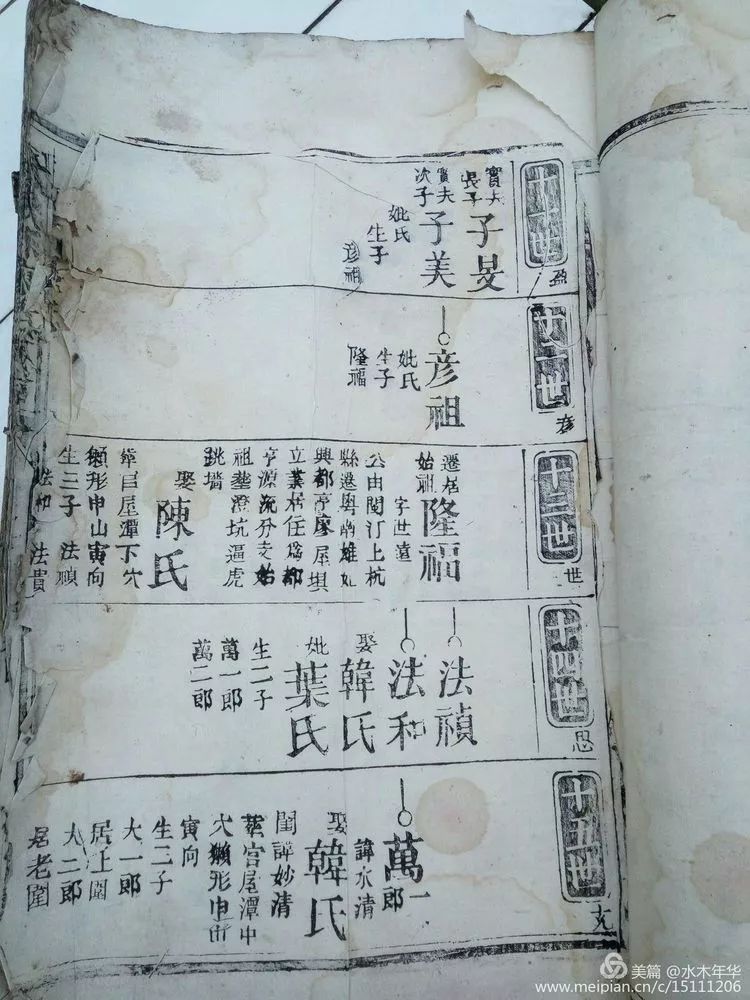 十一世
盈
實夫
長子
子旻
實夫
次子
子美
妣氏
生子
彦祖
十二世
彦
彦祖
妣氏
生子
隆福
十三世
世
遷居
始祖
隆福
字世遠
公由閩汀上杭
縣遷粤南雄始
興都亨廖犀堪
立業居住爲都
亨源流分支始
祖塟澄坑逼虎
跳墻
娶
陳氏
塟官屋潭下穴
獺形申山寅向
生三子 法禎
法和 法貴
十四世
思
法禎
法和
娶
韓氏
妣
葉氏
生二子
萬一郎
萬二郎
十五世
文
萬一
郎
諱水清
娶
韓氏
閨諱妙清
塟官屋潭中
穴獺形申山
寅向
生二子
大一郎
居上圍
大二郎
居老圍
美篇 @水木年华
www.meipian.cn/c/15111206